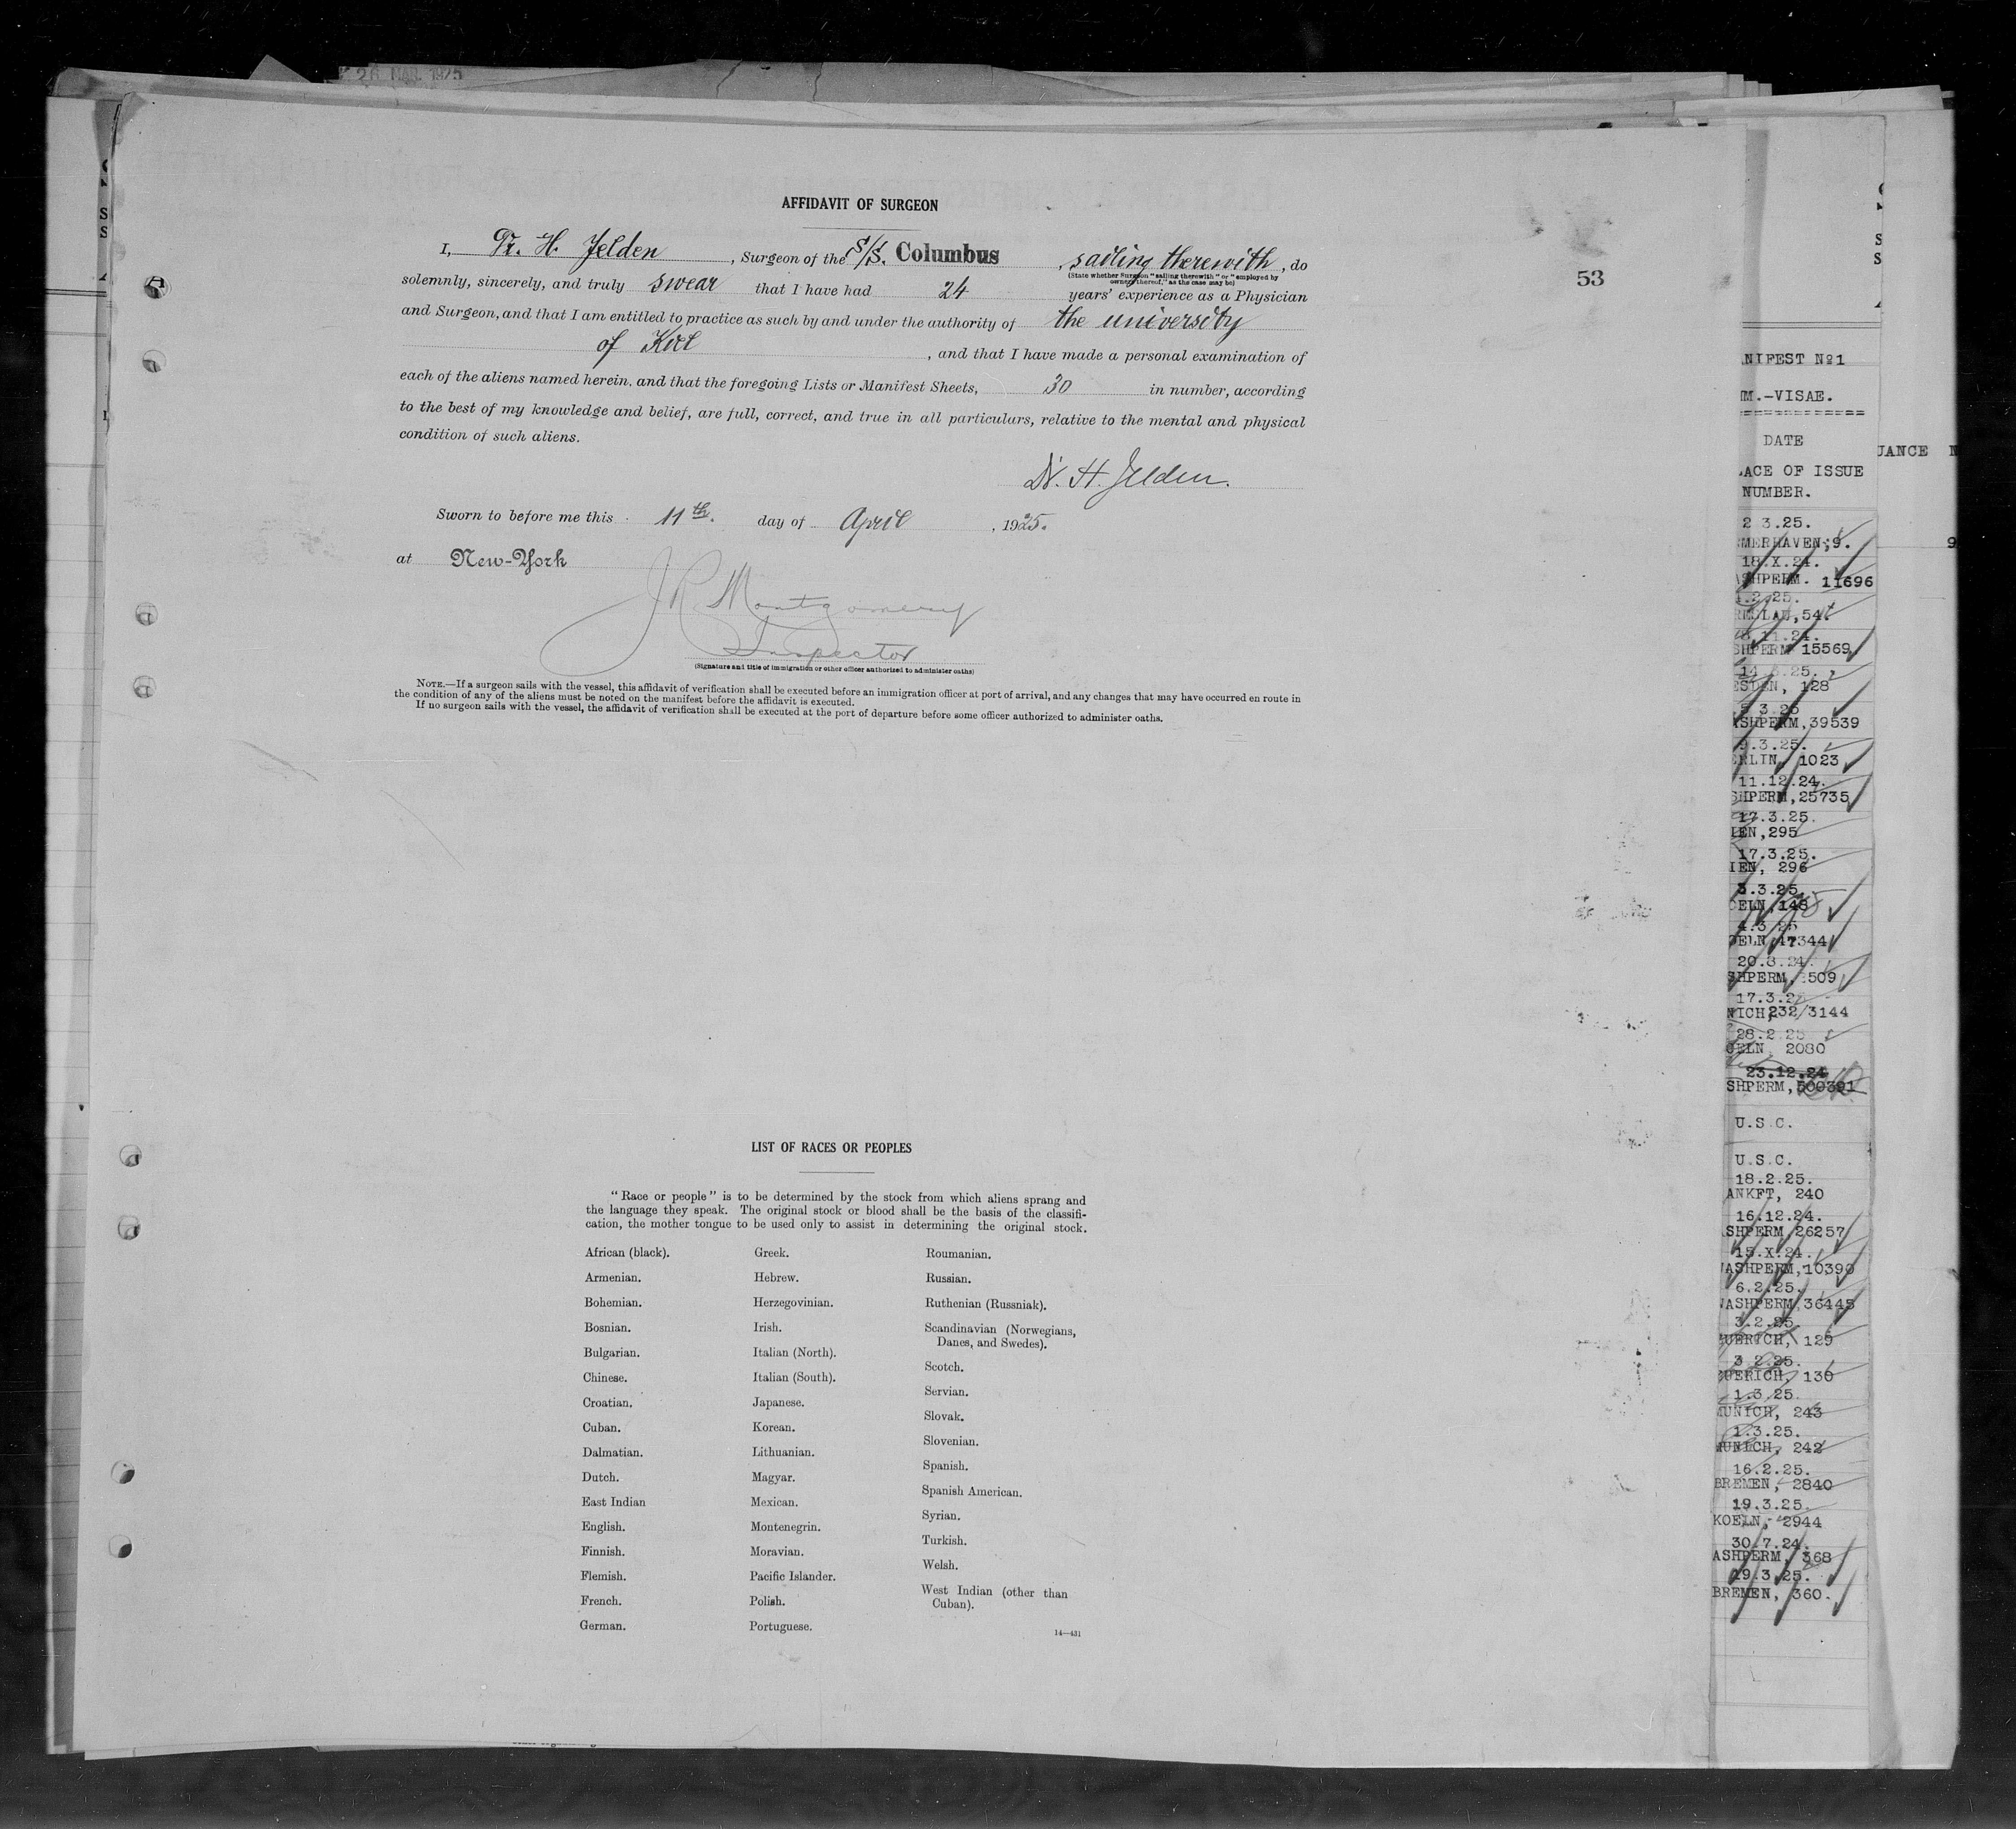 26 MAR. 1925
AFFIDAVIT OF SURGEON
53
I, Dr. H. Jelden, Surgeon of the S/S. Columbus, sailing therewith, do
(State whether Surgeon "sailing therewith" or "employed by
owners thereof," as the case may be)
solemnly, sincerely, and truly swear that I have had 24 years' experience as a Physician
and Surgeon, and that I am entitled to practice as such by and under the authority of the university
of Kiel, and that I have made a personal examination of
each of the aliens named herein, and that the foregoing Lists or Manifest Sheets, 30 in number, according
to the best of my knowledge and belief, are full, correct, and true in all particulars, relative to the mental and physical
condition of such aliens.
Dr. H. Jelden.
Sworn to before me this 11th. day of April, 1925.
at New-York
J R Montgomery
Inspector
(Signature and title of immigration or other officer authorized to administer oaths)
NOTE.—If a surgeon sails with the vessel, this affidavit of verification shall be executed before an immigration officer at port of arrival, and any changes that may have occurred en route in
the condition of any of the aliens must be noted on the manifest before the affidavit is executed.
If no surgeon sails with the vessel, the affidavit of verification shall be executed at the port of departure before some officer authorized to administer oaths.
LIST OF RACES OR PEOPLES
"Race or people" is to be determined by the stock from which aliens sprang and
the language they speak. The original stock or blood shall be the basis of the classifi-
cation, the mother tongue to be used only to assist in determining the original stock.
African (black).
Armenian.
Bohemian.
Bosnian.
Bulgarian.
Chinese.
Croatian.
Cuban.
Dalmatian.
Dutch.
East Indian
English.
Finnish.
Flemish.
French.
German.
Greek.
Hebrew.
Herzegovinian.
Irish.
Italian (North).
Italian (South).
Japanese.
Korean.
Lithuanian.
Magyar.
Mexican.
Montenegrin.
Moravian.
Pacific Islander.
Polish.
Portuguese.
Roumanian.
Russian.
Ruthenian (Russniak).
Scandinavian (Norwegians,
Danes, and Swedes).
Scotch.
Servian.
Slovak.
Slovenian.
Spanish.
Spanish American.
Syrian.
Turkish.
Welsh.
West Indian (other than
Cuban).
14—431
NIFEST No1
M.-VISAE.
DATE
ACE OF ISSUE
NUMBER.
2 3.25.
MERHAVEN;9.
18.X.24.
SHPERM. 11696
1.2.25.
RESLAU,54.
11.24.
SHPERM 15569
ESDEN, 128
5 3.25
ASHPERM,39539
9.3.25.
ERLIN, 1023
11.12.24.
SHPERM,25735
17.3.25.
IEN,295
17.3.25.
IEN, 296
3.3.25.
OELN,148
4.3 25
OELN,17344
20.8.24.
SHPERM, 509
17.3.2
NICH,232/3144
28.2.25
OELN 2080
23.12.24
SHPERM,500391
U.S.C.
U.S.C.
18.2.25.
ANKFT, 240
16.12.24.
SHPERM 26257
15.X.24.
ASHPERM,10390
6.2.25.
WASHPERM,36445
3.2.25.
ZUERICH, 129
3 2.25.
ZUERICH, 130
1.3.25.
MUNICH, 243
1.3.25.
MUNICH, 242
16.2.25.
BREMEN, 2840
19.3.25.
KOELN, 2944
30.7.24.
ASHPERM, 368
19.3.25.
BREMEN, 360.
UANCE N
9